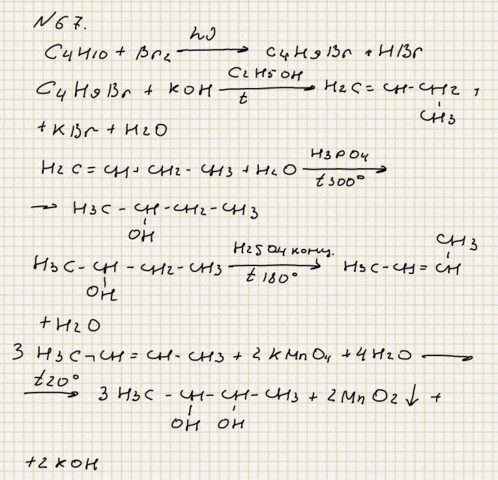 N67.
C4H10 + Br2 —hν→ C4H9Br + HBr
C4H9Br + KOH —C2H5OH, t→ H2C = CH - CH2 +
CH3
+ KBr + H2O
H2C = CH - CH2 - CH3 + H2O —H3PO4, t 300°→
→ H3C - CH - CH2 - CH3
OH
H3C - CH - CH2 - CH3 —H2SO4 конц., t 180°→ H3C - CH = CH
OH
CH3
+ H2O
3 H3C - CH = CH - CH3 + 2 KMnO4 + 4H2O →
—t 20°→ 3 H3C - CH - CH - CH3 + 2MnO2↓ +
OH OH
+2 KOH